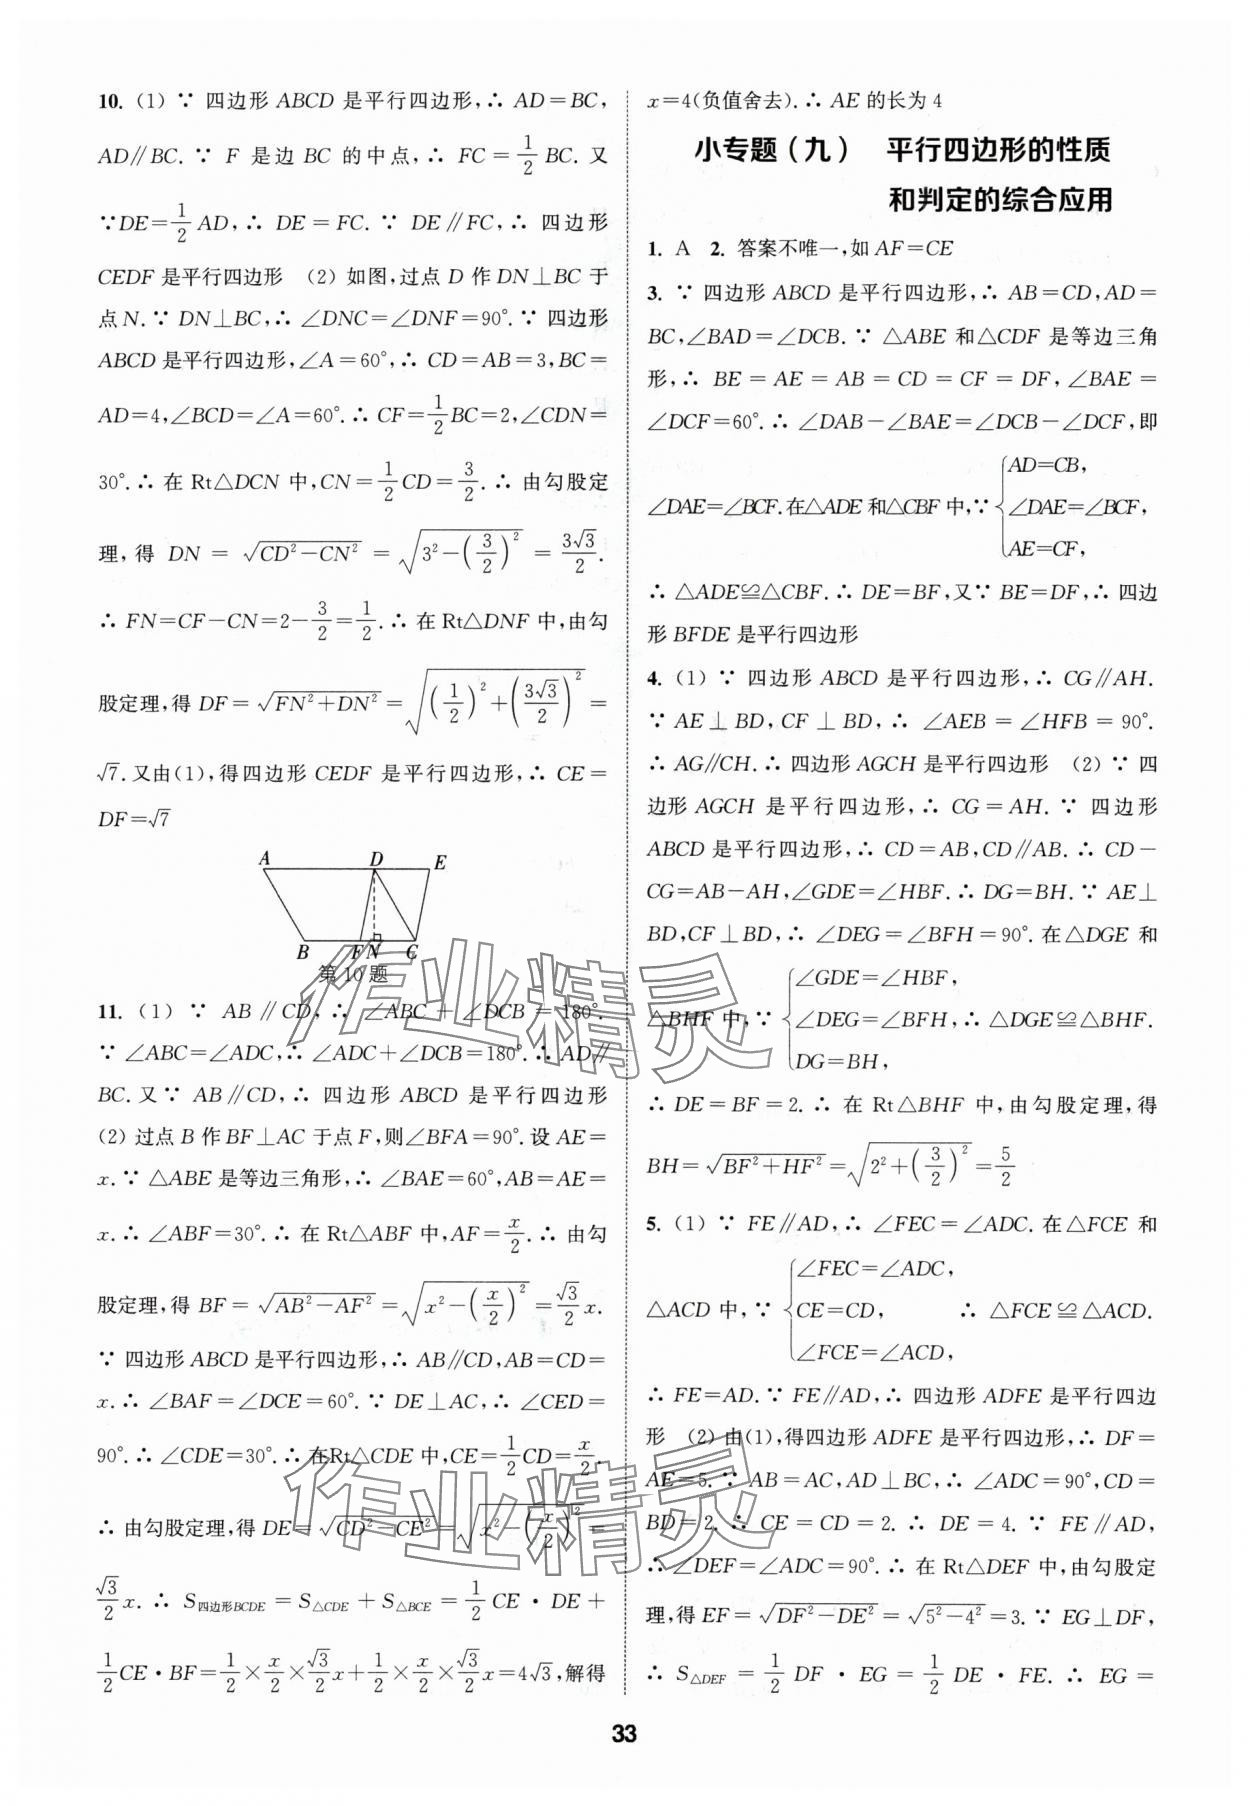 10. (1) ∵ 四边形 ABCD 是平行四边形,∴ AD=BC,
AD∥BC. ∵ F 是边 BC 的中点,∴ FC=1/2 BC. 又
∵DE=1/2 AD,∴ DE=FC. ∵ DE∥FC,∴ 四边形
CEDF 是平行四边形 (2) 如图,过点 D 作 DN⊥BC 于
点 N. ∵ DN⊥BC,∴ ∠DNC=∠DNF=90°. ∵ 四边形
ABCD 是平行四边形,∠A=60°,∴ CD=AB=3,BC=
AD=4,∠BCD=∠A=60°. ∴ CF=1/2 BC=2,∠CDN=
30°. ∴ 在 Rt△DCN 中,CN=1/2 CD=3/2. ∴ 由勾股定
理,得 DN = √(CD²-CN²) = √(3²-(3/2)²) = 3√3/2.
∴ FN=CF-CN=2-3/2=1/2. ∴ 在 Rt△DNF 中,由勾
股定理,得 DF=√(FN²+DN²)=√((1/2)²+(3√3/2)²)=
√7. 又由(1),得四边形 CEDF 是平行四边形,∴ CE=
DF=√7
A D E
B F N C
第 10 题
11. (1) ∵ AB∥CD, ∴ ∠ABC + ∠DCB = 180°.
∵ ∠ABC=∠ADC,∴ ∠ADC+∠DCB=180°. ∴ AD∥
BC. 又∵ AB∥CD,∴ 四边形 ABCD 是平行四边形
(2) 过点 B 作 BF⊥AC 于点 F,则∠BFA=90°. 设 AE=
x. ∵ △ABE 是等边三角形,∴ ∠BAE=60°,AB=AE=
x. ∴ ∠ABF=30°. ∴ 在 Rt△ABF 中,AF=x/2. ∴ 由勾
股定理,得 BF=√(AB²-AF²)=√(x²-(x/2)²)=√3/2 x.
∵ 四边形 ABCD 是平行四边形,∴ AB∥CD,AB=CD=
x. ∴ ∠BAF=∠DCE=60°. ∵ DE⊥AC,∴ ∠CED=
90°. ∴ ∠CDE=30°. ∴ 在Rt△CDE 中,CE=1/2 CD=x/2.
∴ 由勾股定理,得 DE=√(CD²-CE²)=√(x²-(x/2)²)=
√3/2 x. ∴ S四边形BCDE = S△CDE + S△BCE = 1/2 CE·DE+
1/2 CE·BF=1/2×x/2×√3/2 x+1/2×x/2×√3/2 x=4√3,解得
x=4(负值舍去). ∴ AE 的长为 4
小专题(九) 平行四边形的性质
和判定的综合应用
1. A 2. 答案不唯一,如 AF=CE
3. ∵ 四边形 ABCD 是平行四边形,∴ AB=CD,AD=
BC,∠BAD=∠DCB. ∵ △ABE 和△CDF 是等边三角
形,∴ BE=AE=AB=CD=CF=DF,∠BAE=
∠DCF=60°. ∴ ∠DAB-∠BAE=∠DCB-∠DCF,即
AD=CB,
∠DAE=∠BCF. 在△ADE 和△CBF 中,∵ ∠DAE=∠BCF,
AE=CF,
∴ △ADE≌△CBF. ∴ DE=BF,又∵ BE=DF,∴ 四边
形 BFDE 是平行四边形
4. (1) ∵ 四边形 ABCD 是平行四边形,∴ CG∥AH.
∵ AE⊥BD, CF⊥BD, ∴ ∠AEB=∠HFB=90°.
∴ AG∥CH. ∴ 四边形 AGCH 是平行四边形 (2) ∵ 四
边形 AGCH 是平行四边形,∴ CG=AH. ∵ 四边形
ABCD 是平行四边形,∴ CD=AB,CD∥AB. ∴ CD-
CG=AB-AH,∠GDE=∠HBF. ∴ DG=BH. ∵ AE⊥
BD,CF⊥BD,∴ ∠DEG=∠BFH=90°. 在△DGE 和
∠GDE=∠HBF,
△BHF 中,∵ ∠DEG=∠BFH, ∴ △DGE≌△BHF.
DG=BH,
∴ DE=BF=2. ∴ 在 Rt△BHF 中,由勾股定理,得
BH=√(BF²+HF²)=√(2²+(3/2)²)=5/2
5. (1) ∵ FE∥AD,∴ ∠FEC=∠ADC. 在△FCE 和
∠FEC=∠ADC,
△ACD 中,∵ CE=CD, ∴ △FCE≌△ACD.
∠FCE=∠ACD,
∴ FE=AD. ∵ FE∥AD,∴ 四边形 ADFE 是平行四边
形 (2) 由(1),得四边形 ADFE 是平行四边形,∴ DF=
AE=5. ∵ AB=AC,AD⊥BC,∴ ∠ADC=90°,CD=
BD=2. ∴ CE=CD=2. ∴ DE=4. ∵ FE∥AD,
∴ ∠DEF=∠ADC=90°. ∴ 在 Rt△DEF 中,由勾股定
理,得 EF=√(DF²-DE²)=√(5²-4²)=3. ∵ EG⊥DF,
∴ S△DEF = 1/2 DF·EG = 1/2 DE·FE. ∴ EG=
33
作业精灵
作业精灵